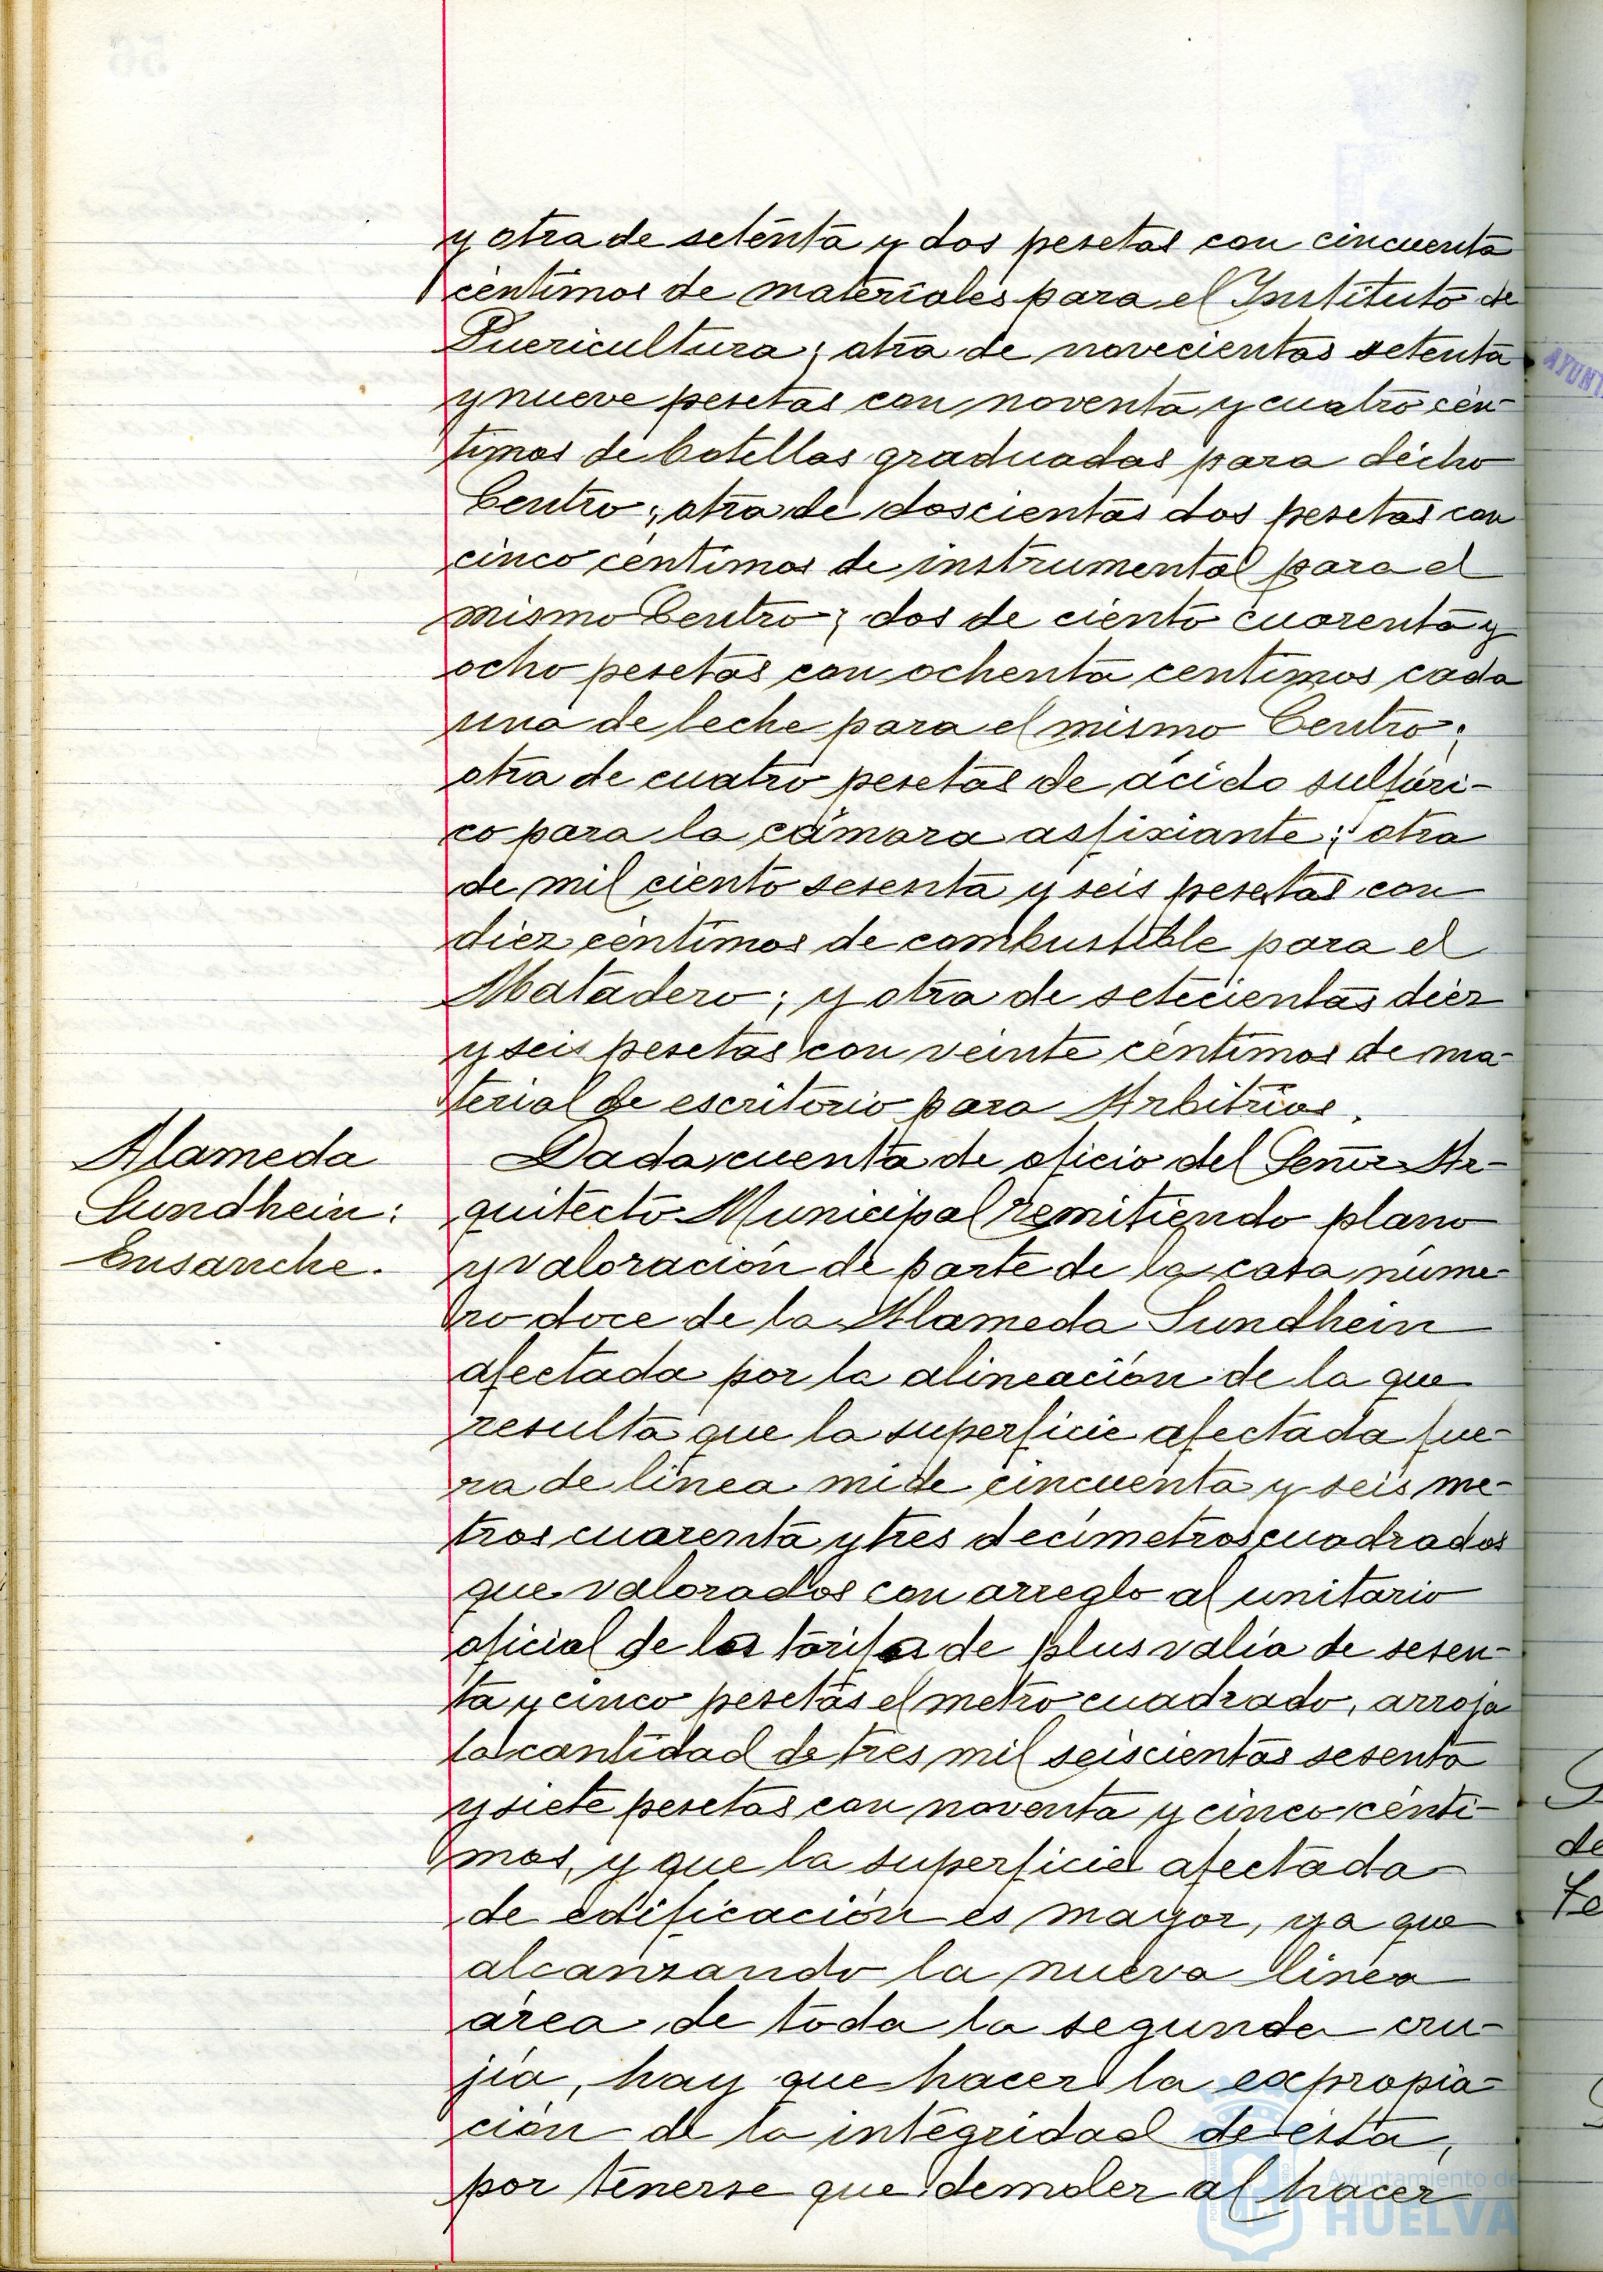 y otra de setenta y dos pesetas con cincuenta
centimos de materiales para el Instituto de
Puericultura; otra de novecientas setenta
y nueve pesetas con noventa y cuatro cén-
timos de botellas graduadas para dicho
Centro; otra de doscientas dos pesetas con
cinco centimos de instrumental para el
mismo Centro; dos de ciento cuarenta y
ocho pesetas con ochenta centimos cada
una de leche para el mismo Centro;
otra de cuatro pesetas de ácido sulfúri-
co para la cámara asfixiante; otra
de mil ciento sesenta y seis pesetas con
diez céntimos de combustible para el
Matadero; y otra de setecientas diez
y seis pesetas con veinte céntimos de ma-
terial de escritorio para Arbitrios.
Alameda
Sundhein:
Ensanche.
Dada cuenta de oficio del Señor Ar-
quitecto Municipal remitiendo plano
y valoración de parte de la casa núme-
ro doce de la Alameda Sundhein
afectada por la alineación de la que
resulta que la superficie afectada fue-
ra de línea mide cincuenta y seis me-
tros cuarenta y tres decímetros cuadrados
que valorados con arreglo al unitario
oficial de la tarifa de plus valía de sesen-
ta y cinco pesetas el metro cuadrado, arroja
la cantidad de tres mil seiscientas sesenta
y siete pesetas con noventa y cinco cénti-
mos, y que la superficie afectada
de edificación es mayor, ya que
alcanzando la nueva línea
área de toda la segunda cru-
jía, hay que hacer la expropia-
ción de la integridad de ésta,
por tenerse que demoler al hacer
Ayuntamiento de
HUELVA